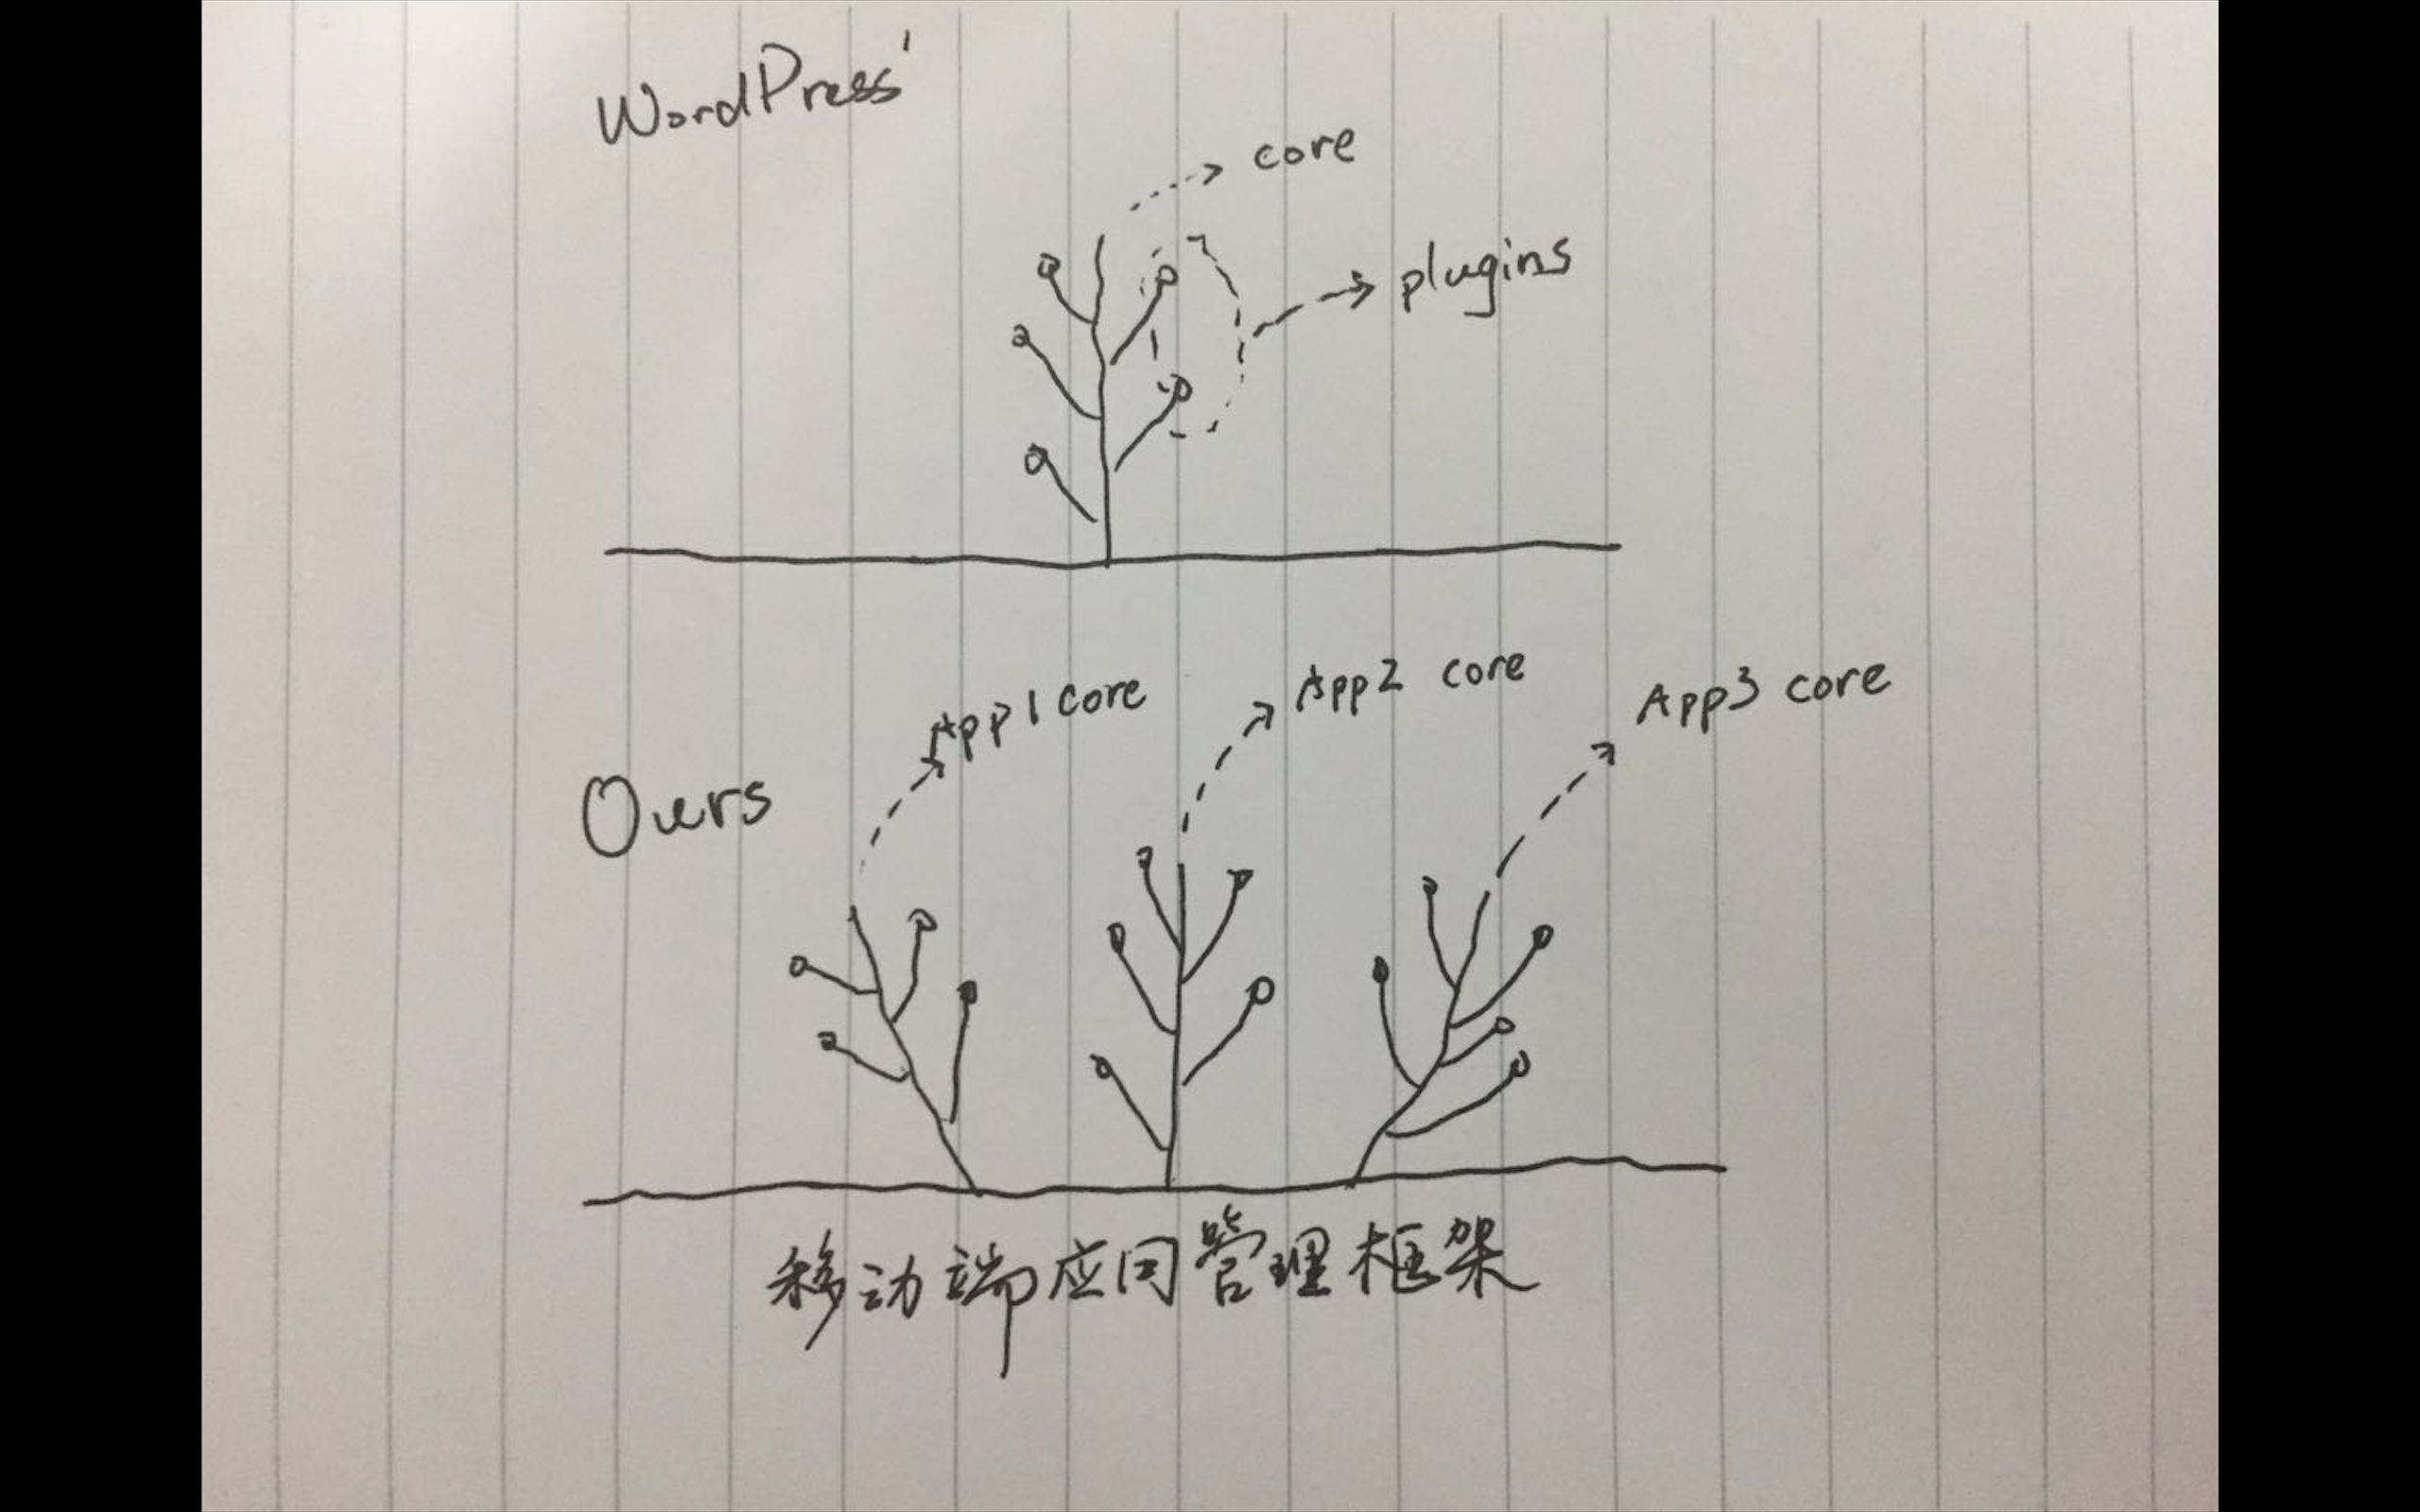 WordPress'
core
plugins
App1 core
App2 core
App3 core
Ours
移动端应用管理框架